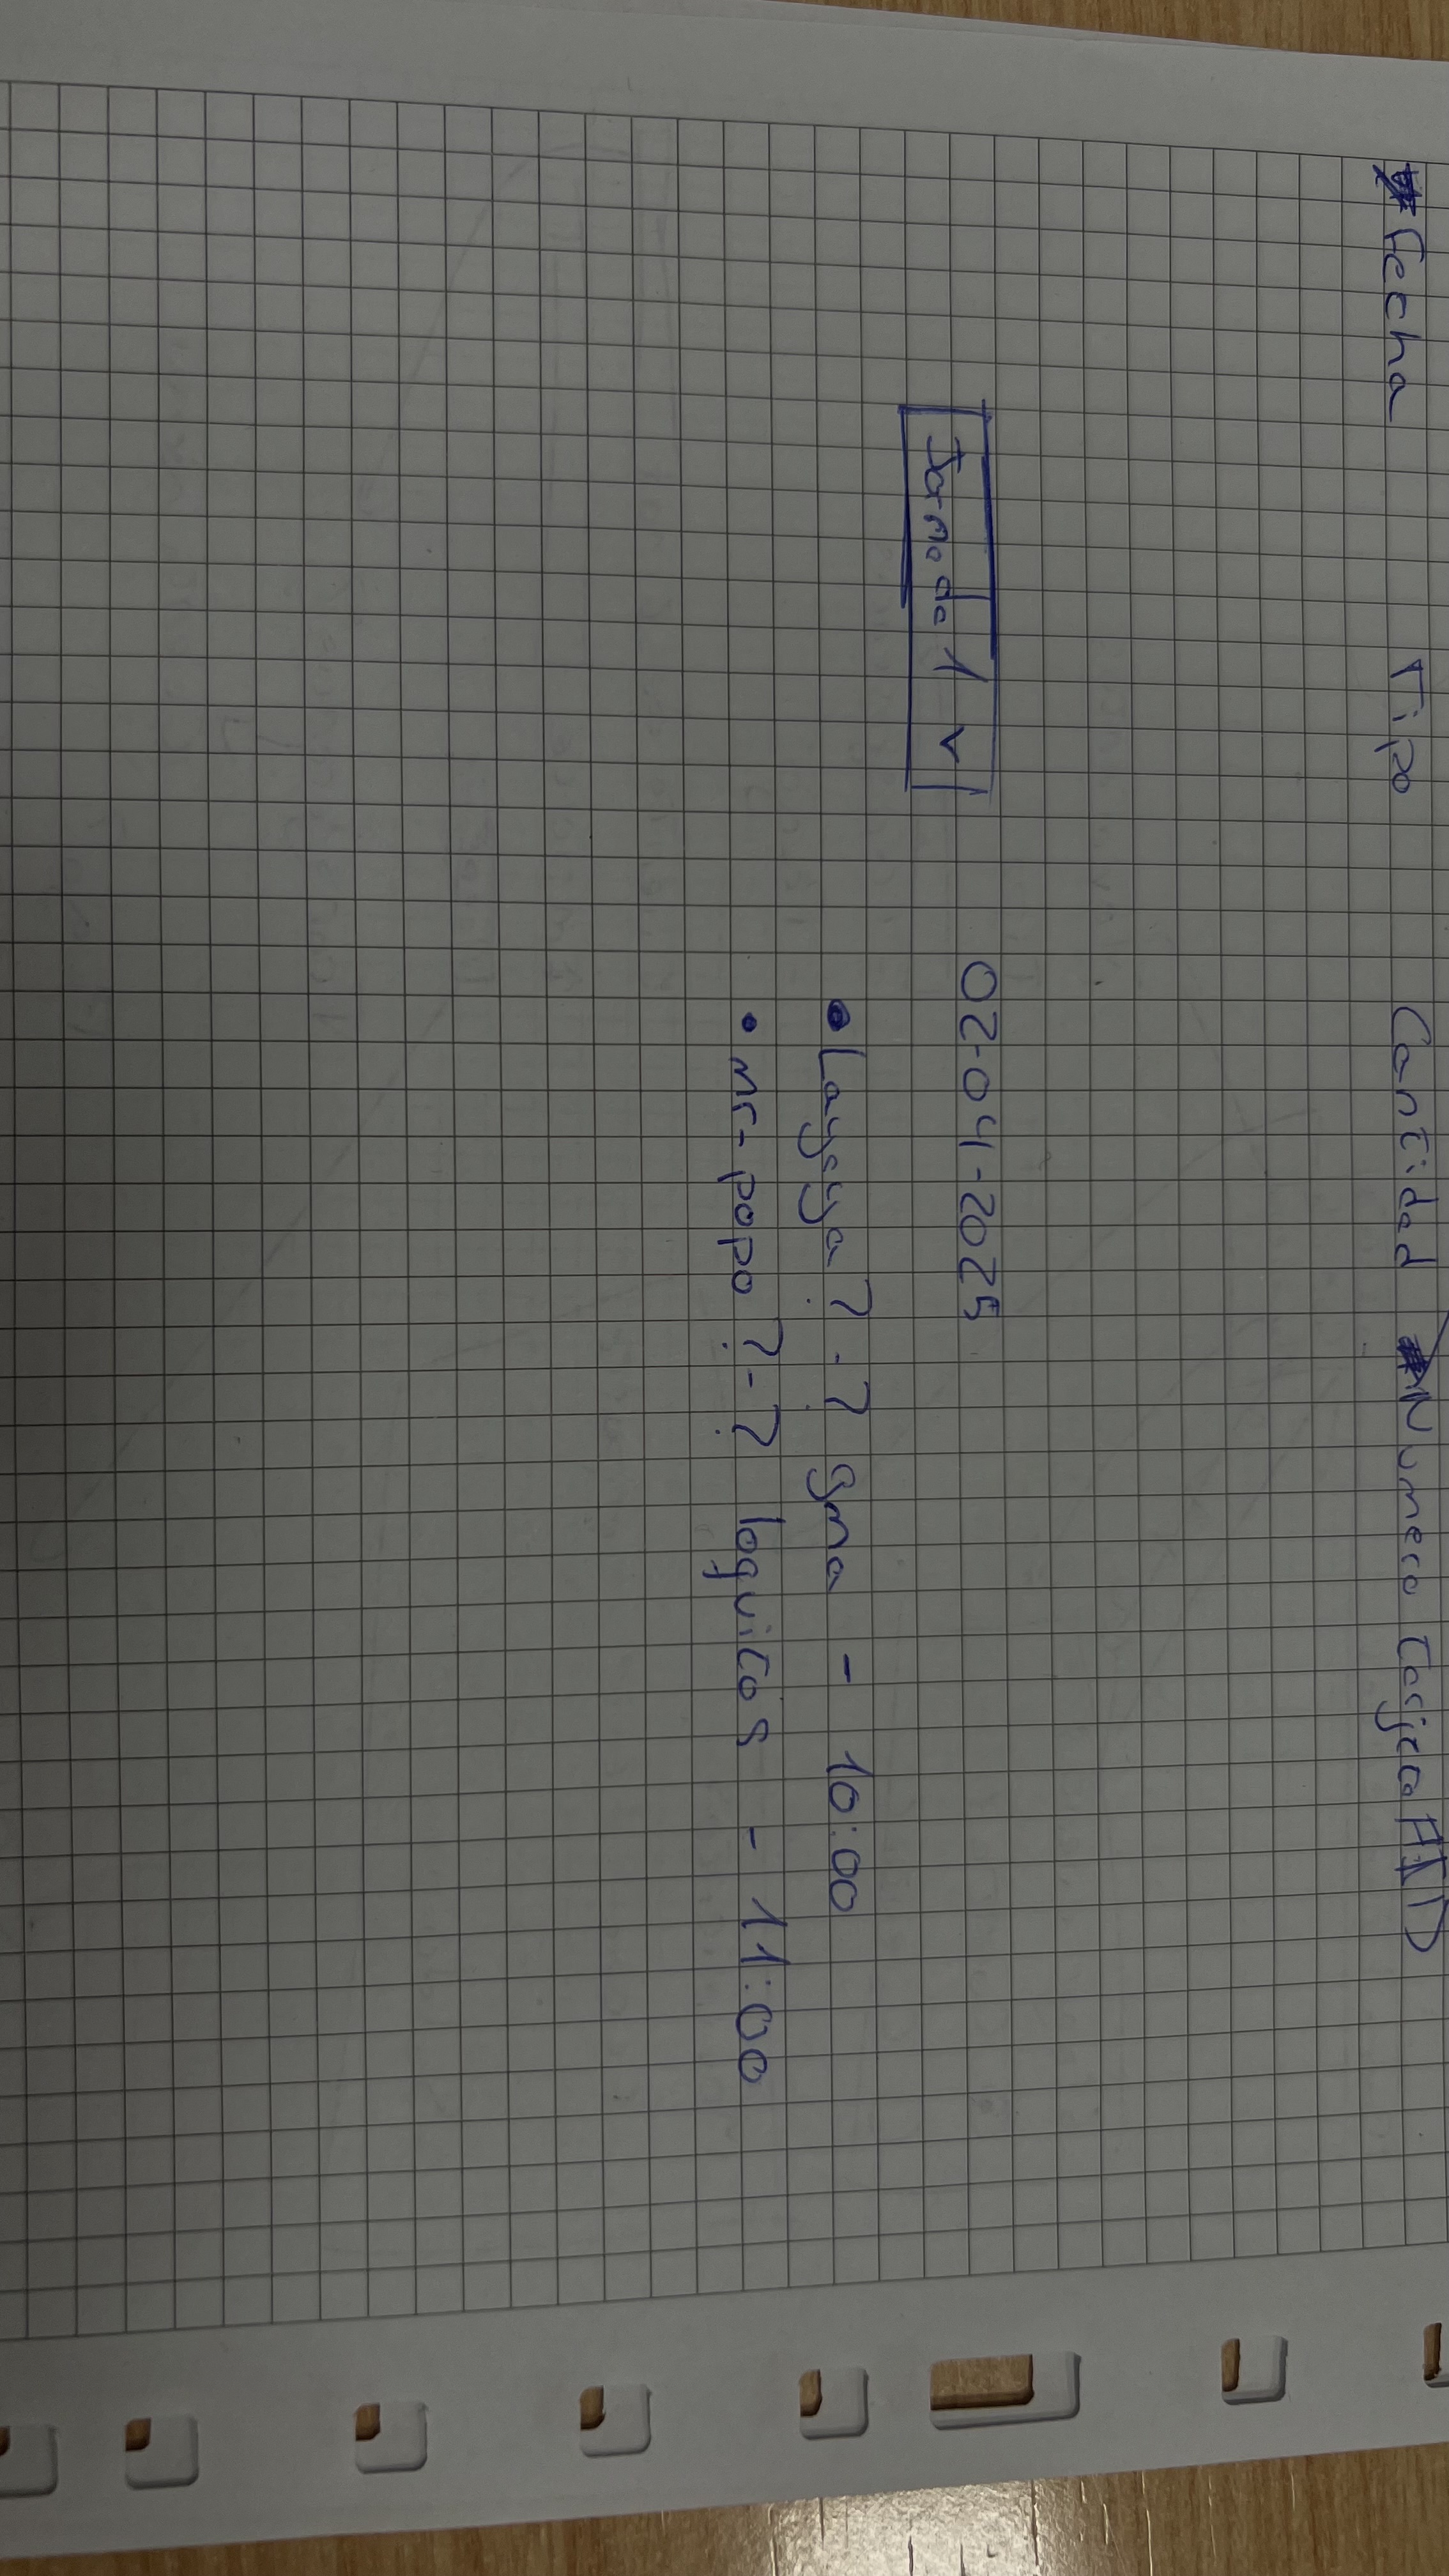 Fecha Tipo Cantidad Numero tarjeta HD
Jornada 1 v
02-04-2025
• Laysya ? - ? gma - 10:00
• mr-popo ? - ? loquitos - 11:00